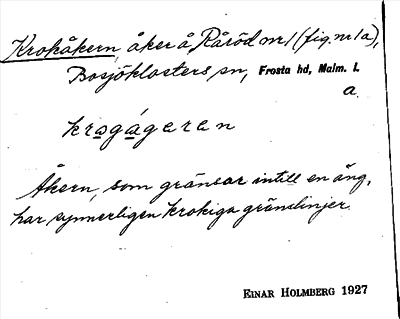 Krokåkern, åker å Råröd nr 1 (fig. nr 1a),
Bosjöklosters sn, Frosta hd, Malm. l.
a.
krogågaran
Åkern, som gränsar intill en äng,
har synnerligen krokiga gränslinjer.
EINAR HOLMBERG 1927